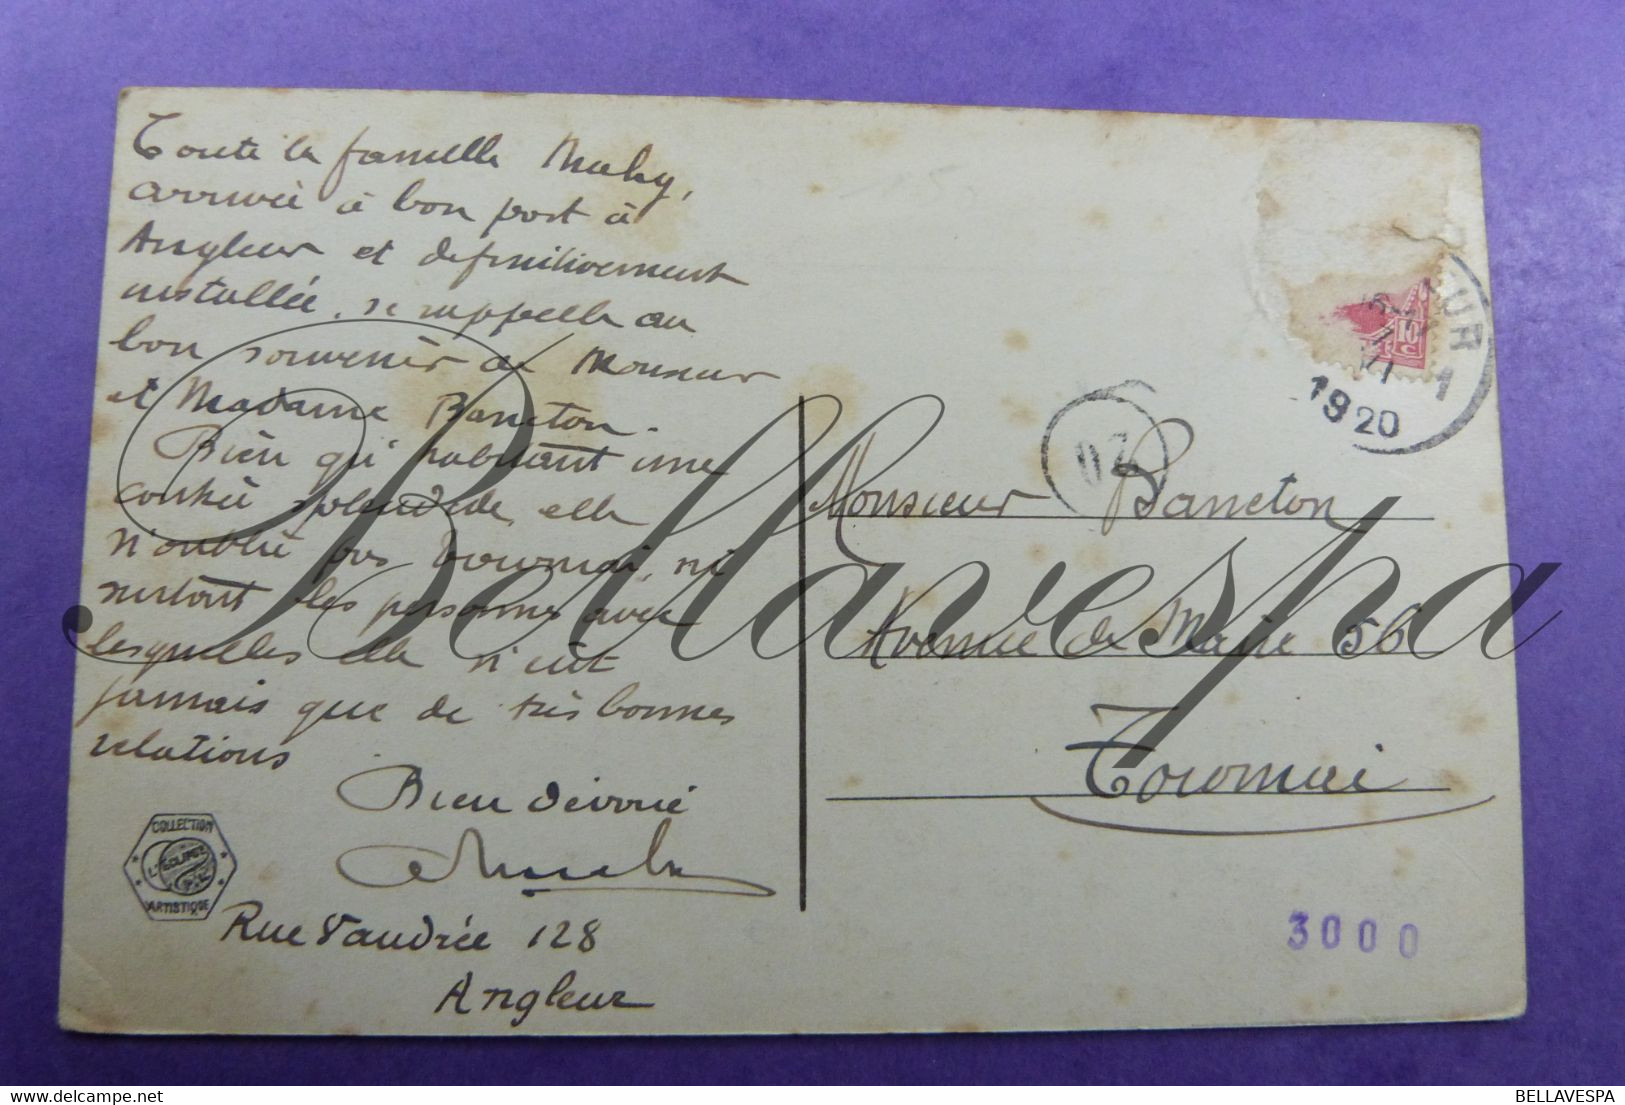 Toute la famille Mahy,
arrivée à bon port à
Angleur et définitivement
installée, se rappelle au
bon souvenir de Monsieur
et Madame Banneton.
Bien qu'habitant une
contrée splendide, elle
n'oublie pas Tournai, ni
surtout les personnes avec
lesquelles elle n'eût
jamais que de très bonnes
relations
Bien dévoué
Rue Vaudrée 128
Angleur
COLLECTION
L'ECLIPSE
ARTISTIQUE
1
1920
10
c
Monsieur Banneton
Avenue de Maire 56
Tournai
3000
Bellavespa
BELLAVESPA